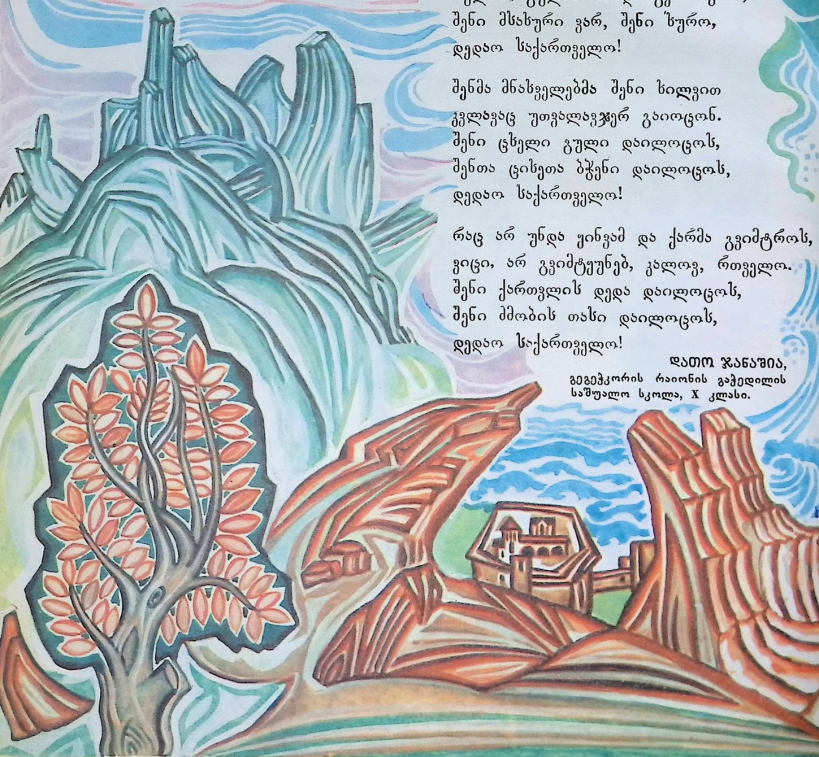 შენი მსახური ვარ, შენი სურო,
დედაო საქართველო!
შენმა მნახველებმა შენიხილვით
კვლავაც უთვალავჯერ გაიოცონ.
შენი ცხელი გული დაილოცოს,
შენთა ციხეთა ბჭენი დაილოცოს,
დედაო საქართველო!
რაც არ უნდა ყინვამ და ქარმა გვიმტროს,
ვიცი, არ გვიმტყუნებ, კალოვ, რთველო.
შენი ქართვლის დედა დაილოცოს,
შენი ძმობის თასი დაილოცოს,
დედაო საქართველო!
დათო ჯანაშია,
გეგეჭკორის რაიონის გაჭედილის
საშუალო სკოლა, X კლასი.